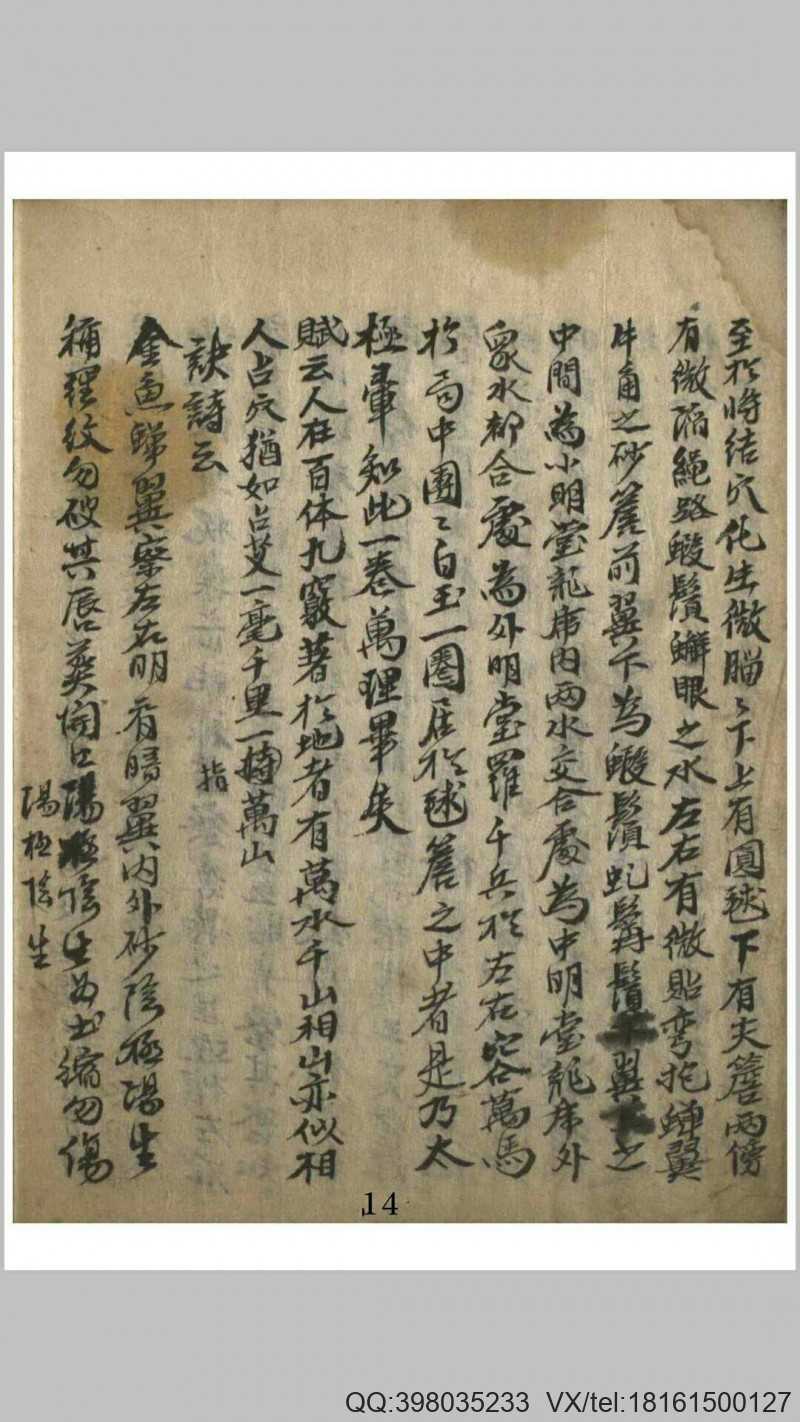 至於將結穴化生微腦〻下上有圓毬下有夫簷兩傍
有微滔繩路蝦鬚蠏眼之水左右有微貼弯抱蟬翼
牛角之砂簷前翼下為蝦鬚虬髯鬚翼之
中間為小明堂龍虎内两水交合處為中明堂龍虎外
衆水都合處為外明堂羅千兵於左右容萬馬
於局中團〻白玉一圈居於毬簷之中者是乃太
極暈知此一卷萬理畢矣
賦云人在百体九竅著於地者有萬水千山相山亦似相
人占穴猶如占艾一毫千里一指萬山
指
訣詩云
金魚蟬翼察左右明有暗翼内外砂陰極陽生
稱理紋勿破其唇葬開口陽極陰生毋出縮勿傷
陽極陰生
14
QQ:398035233 VX/tel:18161500127